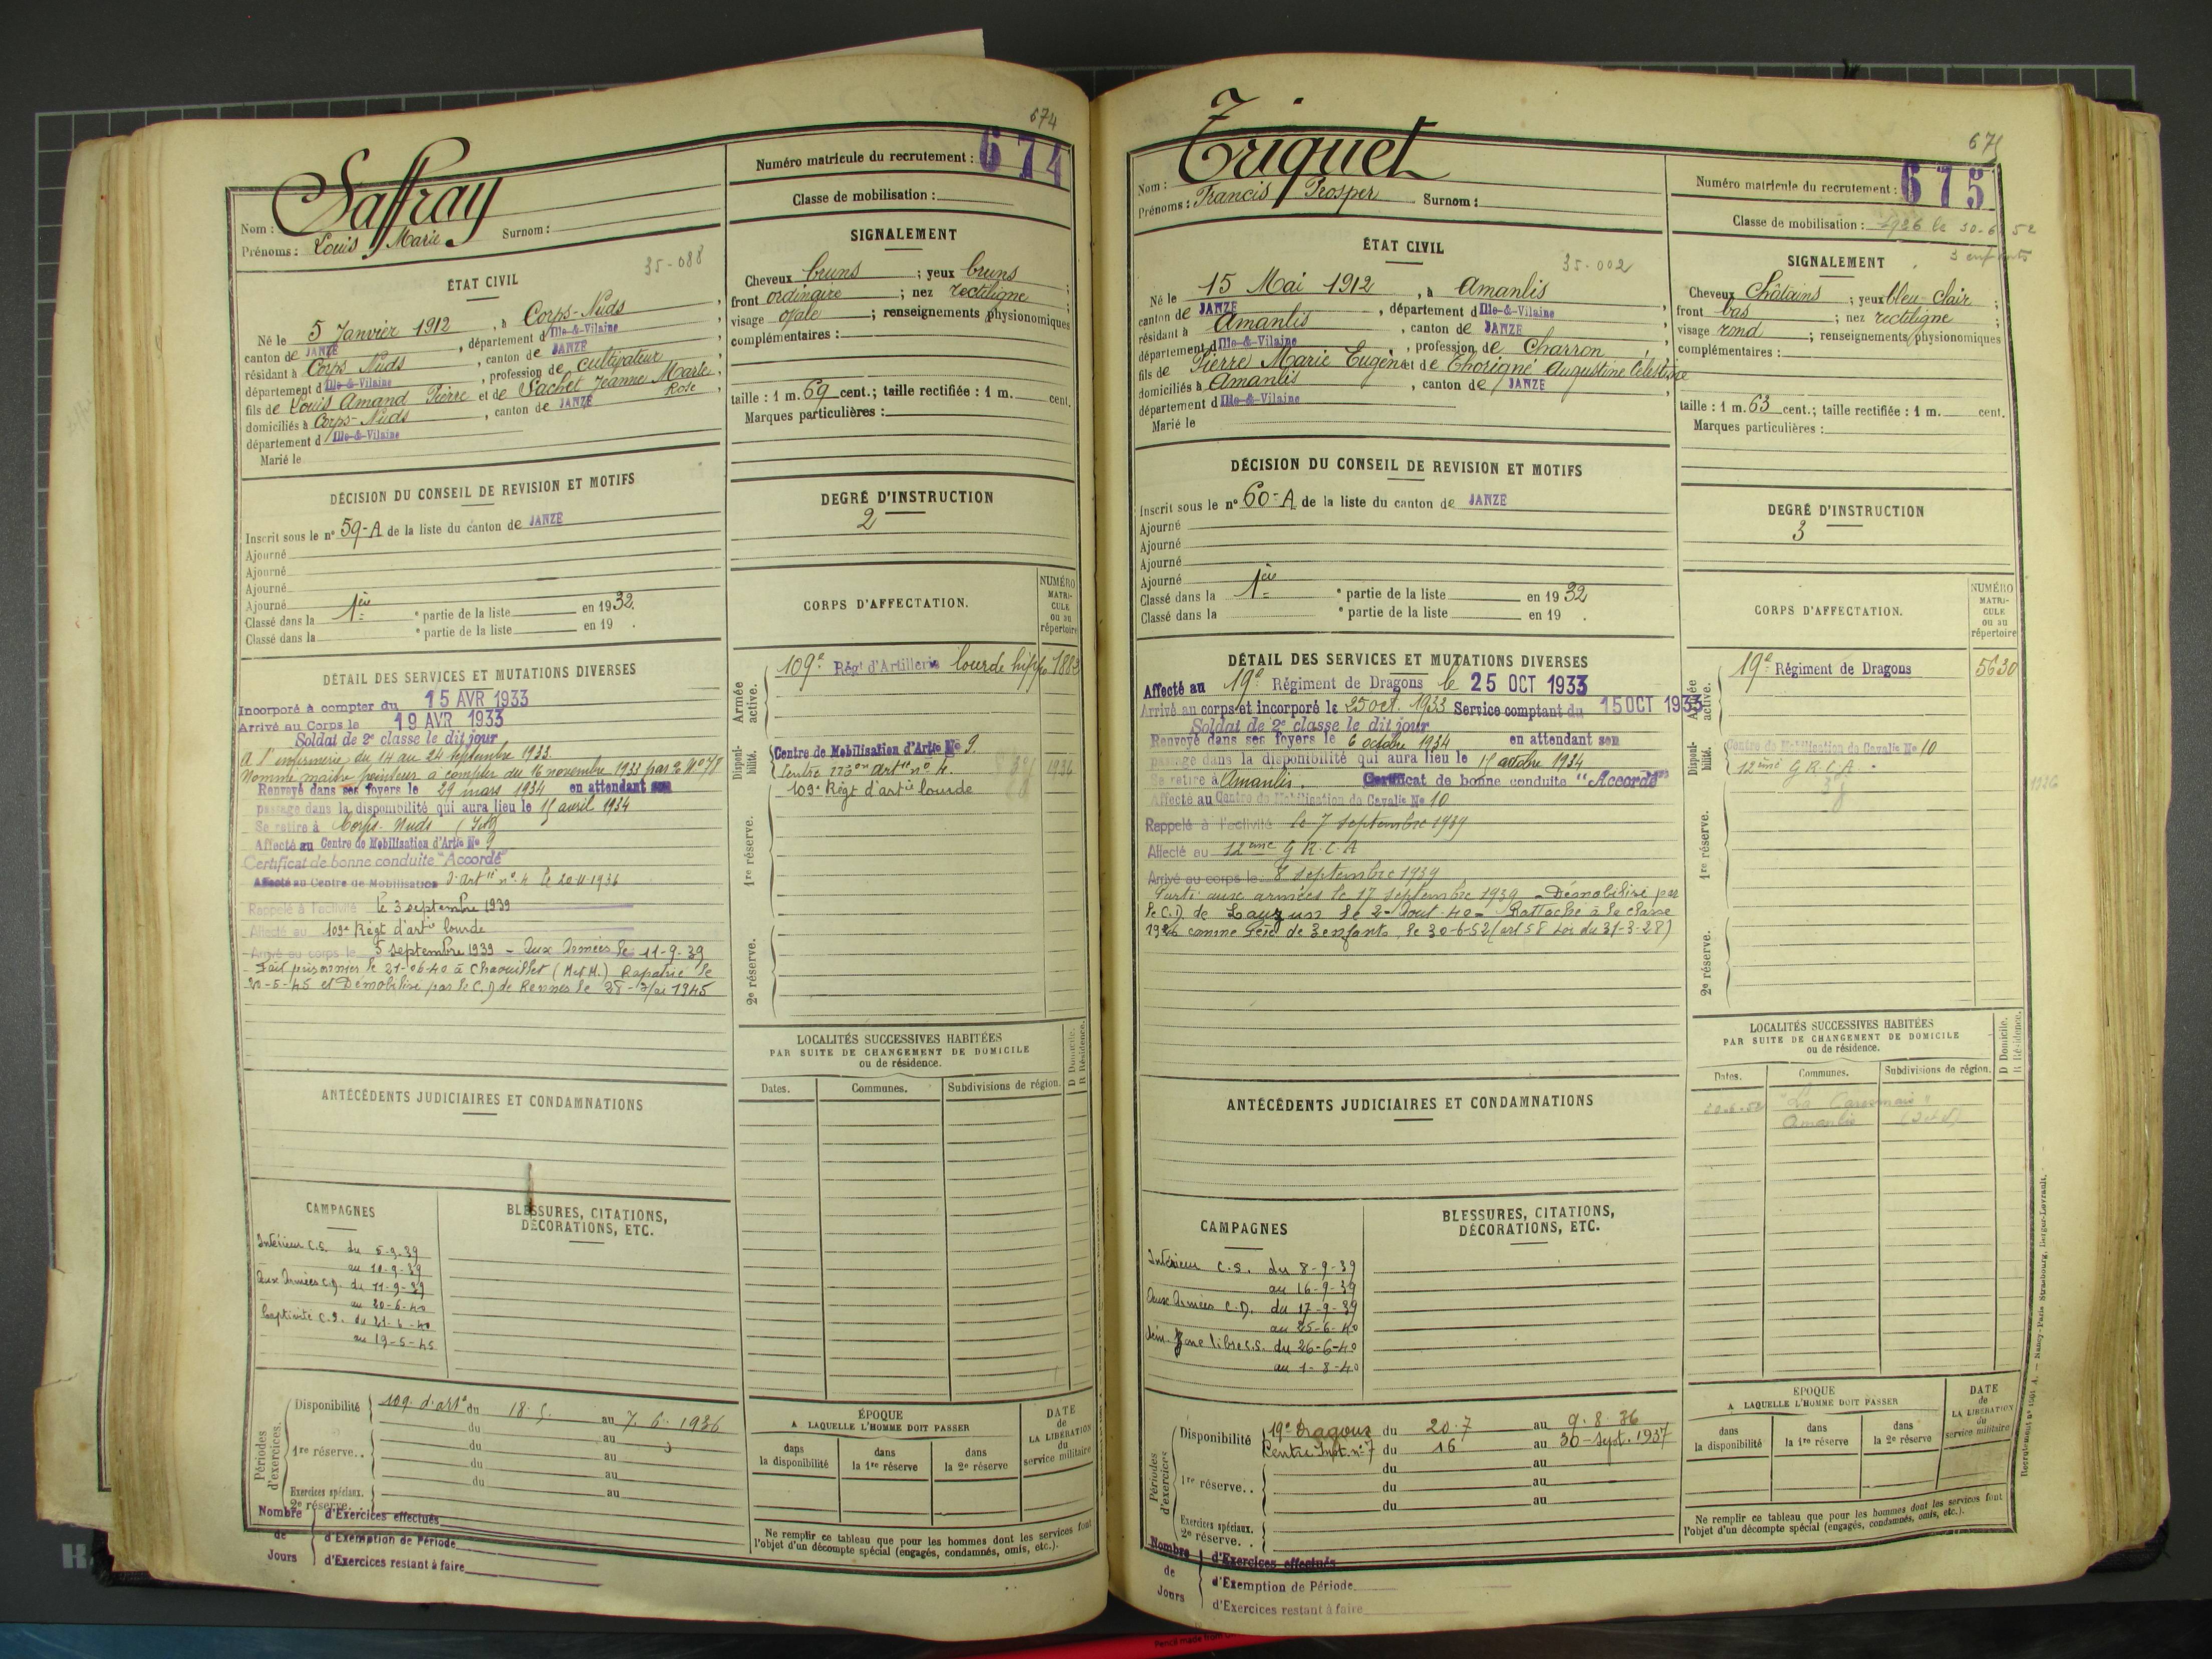 674
Saffray
Nom :
Prénoms : Louis Marie Surnom :
Numéro matricule du recrutement : 674
Classe de mobilisation :
35-088
ÉTAT CIVIL
Né le 5 Janvier 1912, à Corps-Nuds,
canton de JANZÉ, département d Ille-&-Vilaine,
résidant à Corps Nuds, canton de JANZÉ,
département d Ille-&-Vilaine, profession de cultivateur,
fils de Louis Amand Pierre et de Sachet Jeanne Marie Rose,
domiciliés à Corps-Nuds, canton de JANZÉ,
département d Ille-&-Vilaine
Marié le
SIGNALEMENT
Cheveux bruns ; yeux bruns ;
front ordinaire ; nez rectiligne ;
visage ovale ; renseignements physionomiques
complémentaires :
taille : 1 m. 69 cent.; taille rectifiée : 1 m. cent.
Marques particulières :
DÉCISION DU CONSEIL DE REVISION ET MOTIFS
Inscrit sous le n° 59-A de la liste du canton de JANZÉ
Ajourné
Ajourné
Ajourné
Ajourné
Classé dans la 1ère partie de la liste en 1932.
Classé dans la ° partie de la liste en 19 .
DEGRÉ D'INSTRUCTION
2
CORPS D'AFFECTATION.
NUMÉRO
MATRI-
CULE
ou au
répertoire
DÉTAIL DES SERVICES ET MUTATIONS DIVERSES
Incorporé à compter du 15 AVR 1933
Arrivé au Corps le 19 AVR 1933
Soldat de 2e classe le dit jour
A l'infirmerie du 14 au 24 septembre 1933.
Nommé maître pointeur a compter du 16 novembre 1933 par
Renvoyé dans ses foyers le 29 mars 1934 en attendant son
passage dans la disponibilité qui aura lieu le 15 avril 1934
Se retire à Corps-Nuds
Affecté au Centre de Mobilisation d'Artie No 9
Certificat de bonne conduite "Accordé"
Affecté au Centre de Mobilisation d'Artie n° 4 le
Rappelé à l'activité le 3 septembre 1939
Affecté au 109e Régt d'artie lourde
Arrivé au corps le 5 septembre 1939 - Aux Armées le 11-9-39
Fait prisonnier le 21-06-40 à (M et M.) Rapatrié le
20-5-45 et Démobilisé par le C.D de Rennes le 28-Mai 1945
Armée active.
109e Régt d'Artillerie lourde hippo 1882
Disponibilité.
Centre de Mobilisation d'Artie No 9
Centre artie n° 4. 1936
109e Régt d'artie lourde
1re réserve.
2e réserve.
LOCALITÉS SUCCESSIVES HABITÉES
PAR SUITE DE CHANGEMENT DE DOMICILE
ou de résidence.
D Domicile.
R Résidence.
Dates. Communes. Subdivisions de région.
ANTÉCÉDENTS JUDICIAIRES ET CONDAMNATIONS
CAMPAGNES
Intérieur C.S. du 5-9-39
au 10-9-39
Aux Armées C.D. du 11-9-39
au 20-6-40
Captivité C.S. du 21-6-40
au 19-5-45
BLESSURES, CITATIONS,
DÉCORATIONS, ETC.
Périodes d'exercices.
Disponibilité 109. d'artie du 18.5. au 7.6.1936
du au
1re réserve.. du au
du au
du au
Exercices spéciaux.
2e réserve.
au
Nombre de Jours
d'Exercices effectués
d'Exemption de Période
d'Exercices restant à faire
ÉPOQUE
A LAQUELLE L'HOMME DOIT PASSER
dans la disponibilité
dans la 1re réserve
dans la 2e réserve
DATE
de
LA LIBÉRATION
du
service militaire
Ne remplir ce tableau que pour les hommes dont les services font
l'objet d'un décompte spécial (engagés, condamnés, omis, etc.).
675
Triquet
Nom :
Prénoms : Francis Prosper Surnom :
Numéro matricule du recrutement : 675
Classe de mobilisation : 1926 le 30-6-52
3 enfants
35-002
ÉTAT CIVIL
Né le 15 Mai 1912, à Amanlis
canton de JANZÉ, département d Ille-&-Vilaine,
résidant à Amanlis, canton de JANZÉ,
département d Ille-&-Vilaine, profession de Charron,
fils de Pierre Marie Eugène et de Thorigné Augustine Célestine
domiciliés à Amanlis, canton de JANZÉ,
département d Ille-&-Vilaine
Marié le
SIGNALEMENT
Cheveux Châtains ; yeux bleu-clair ;
front bas ; nez rectiligne ;
visage rond ; renseignements physionomiques
complémentaires :
taille : 1 m. 63 cent.; taille rectifiée : 1 m. cent.
Marques particulières :
DÉCISION DU CONSEIL DE REVISION ET MOTIFS
Inscrit sous le n° 60-A de la liste du canton de JANZÉ
Ajourné
Ajourné
Ajourné
Ajourné
Classé dans la 1ère partie de la liste en 1932
Classé dans la ° partie de la liste en 19 .
DEGRÉ D'INSTRUCTION
3
CORPS D'AFFECTATION.
NUMÉRO
MATRI-
CULE
ou au
répertoire
DÉTAIL DES SERVICES ET MUTATIONS DIVERSES
Affecté au 19e Régiment de Dragons le 25 OCT 1933
Arrivé au corps et incorporé le 25 oct. 1933 Service comptant du 15 OCT 1933
Soldat de 2e classe le dit jour
Renvoyé dans ses foyers le 6 octobre 1934 en attendant son
passage dans la disponibilité qui aura lieu le 15 octobre 1934
Se retire à Amanlis. Certificat de bonne conduite "Accordé"
Affecté au Centre de Mobilisation de Cavalie No 10
Rappelé à l'activité le 7 septembre 1939
Affecté au 12ème G.R.C.A
Arrivé au corps le 8 septembre 1939
Parti aux armées le 17 septembre 1939 - Démobilisé par
le C.D de Lauzun le 2-Aout-40- Rattaché à la classe
1926 comme Père de 3 enfants, le 30-6-52 (art 58 Loi du 31-3-28)
Armée active.
19e Régiment de Dragons 5630
Disponibilité.
Centre de Mobilisation de Cavalie No 10
12ème G.R.C.A.
1936
1re réserve.
2e réserve.
LOCALITÉS SUCCESSIVES HABITÉES
PAR SUITE DE CHANGEMENT DE DOMICILE
ou de résidence.
D Domicile.
R Résidence.
Dates. Communes. Subdivisions de région.
30-6-52
Amanlis
ANTÉCÉDENTS JUDICIAIRES ET CONDAMNATIONS
CAMPAGNES
Intérieur C.S. du 8-9-39
au 16-9-39
Aux Armées C.D. du 17-9-39
au 25-6-40
dém. Zone libre C.S. du 26-6-40
au 1-8-40
BLESSURES, CITATIONS,
DÉCORATIONS, ETC.
Périodes d'exercices
Disponibilité 19e Dragons du 20.7 au 9.8.36
Centre Inst. n°7 du 16 au 30-Sept.1937
du au
1re réserve.. du au
du au
Exercices spéciaux.
2e réserve..
Nombre de Jours
d'Exercices effectués
d'Exemption de Période
d'Exercices restant à faire
ÉPOQUE
A LAQUELLE L'HOMME DOIT PASSER
dans la disponibilité
dans la 1re réserve
dans la 2e réserve
DATE
de
LA LIBÉRATION
du
service militaire
Ne remplir ce tableau que pour les hommes dont les services font
l'objet d'un décompte spécial (engagés, condamnés, omis, etc.).
Nancy-Paris-Strasbourg, Berger-Levrault.
Pencil made from